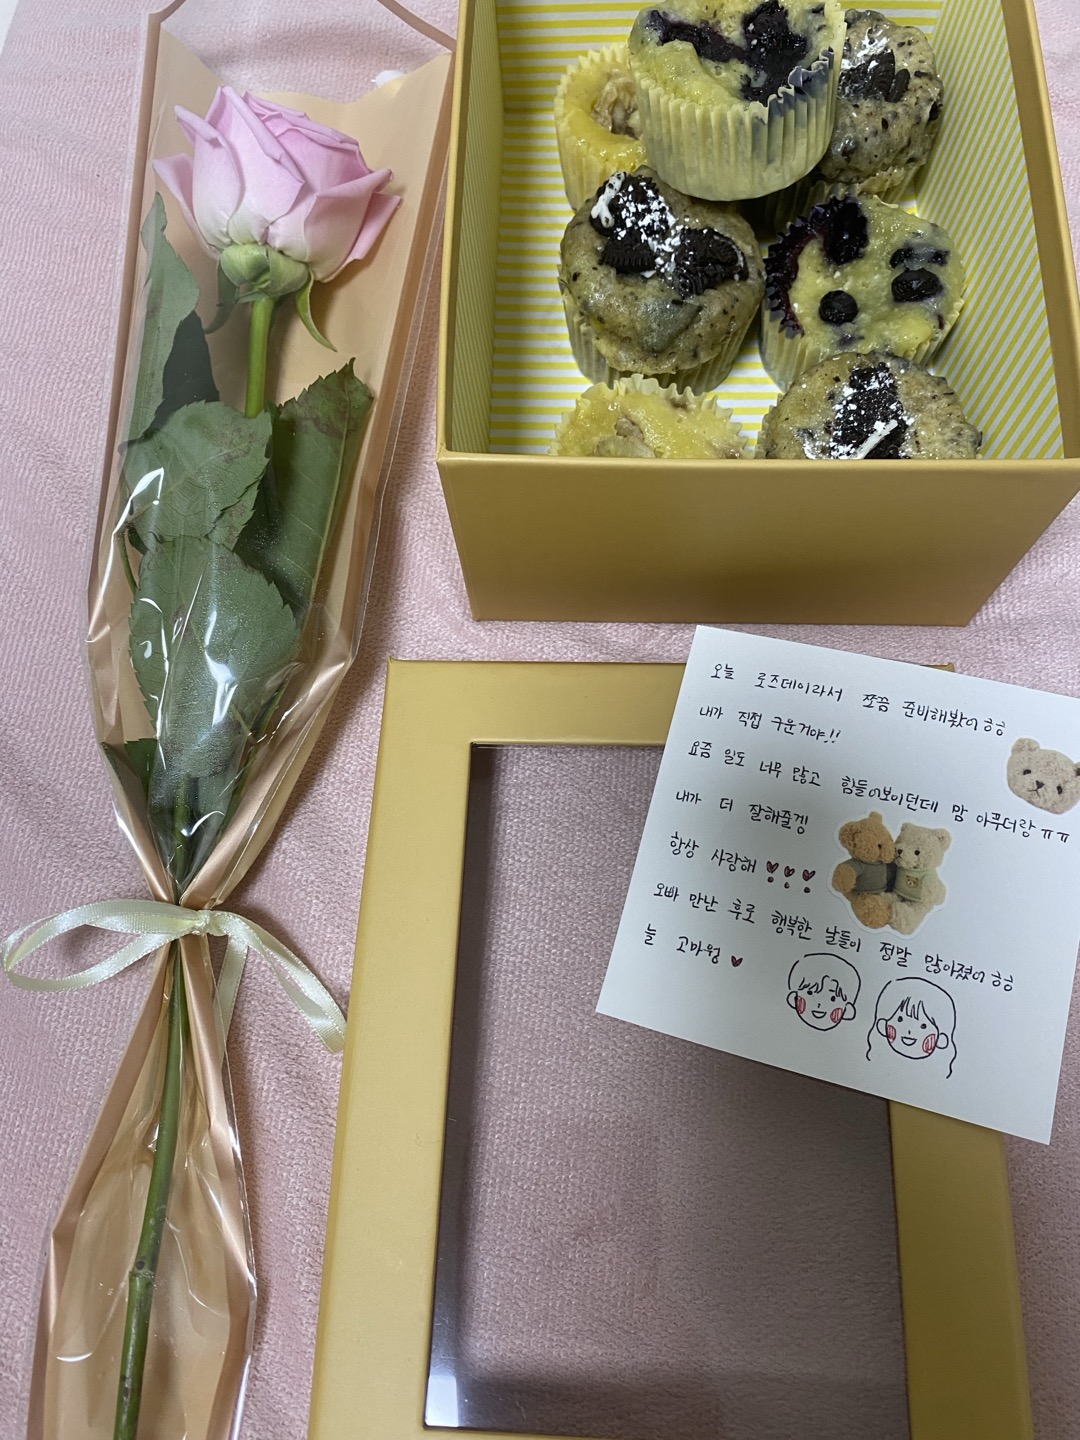 오늘 로즈데이라서 쪼끔 준비해봤어ㅎㅎ
내가 직접 구운거야!!
요즘 일도 너무 많고 힘들어보이던데 맘 아푸더랑ㅠㅠ
내가 더 잘해줄겡
항상 사랑해
오빠 만난 후로 행복한 날들이 정말 많아졌어ㅎㅎ
늘 고마웡